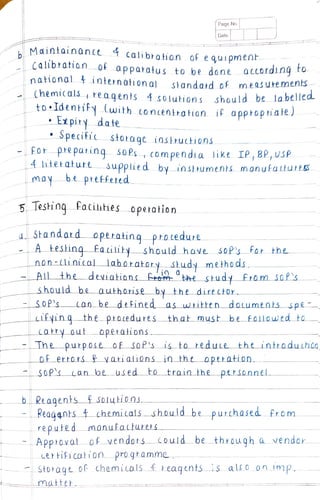 Page No.
Date
b. Maintainance & calibration of equipment
- Calibration of apparatus to be done according to
national & international standard of measurements
- Chemicals, reagents & solutions should be labelled
to • Identify (with concentration if appropriate)
• Expiry date
• Specific storage instructions
- For preparing SOPs, compendia like IP, BP, USP
& literature supplied by instruments manufacturers
may be preffered
5. Testing Facilities operation
a. Standard operating procedure
- A testing facility should have SOP's for the
non-clinical laboratory study methods.
- All the deviations from in a the study from SOP's
should be authorise by the director.
- SOP's can be defined as written documents spe-
cifying the procedures that must be followed to
carry out operations.
- The purpose of SOP's is to reduce the introduction
of errors & variations in the operation.
- SOP's can be used to train the personnel.
b. Reagents & solutions.
- Reagants & chemicals should be purchased from
reputed manufacturers
- Approval of vendors could be through a vendor
certification programme.
- Storage of chemicals & reagents is also an imp.
matter.